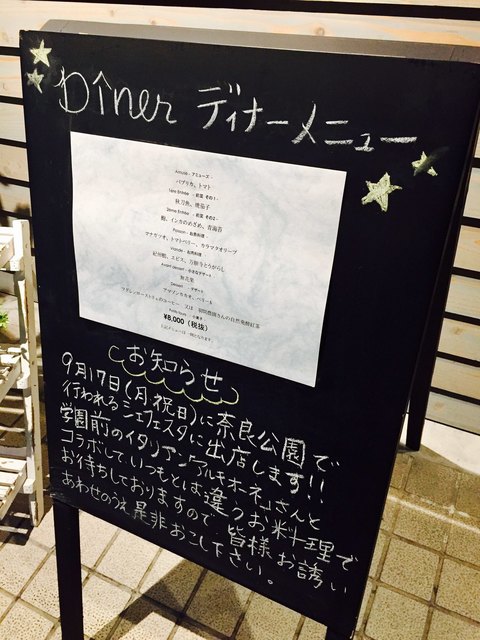 Dîner ディナーメニュー
Amuse - アミューズ -
パプリカ、トマト
1ere Entrée - 前菜 その1 -
秋刀魚、揚茄子
2ème Entrée - 前菜 その2 -
鮑、インカのめざめ、青海苔
Poisson - お魚料理 -
マナガツオ、トマトベリー、カラマタオリーブ
Viande - お肉料理 -
紀州鴨、エピス、万願寺とうがらし
Avant dessert - 小さなデザート
無花果
Dessert - デザート
アマゾンカカオ、ベリーA
マダレンローストさんのコーヒー 又は 羽間農園さんの自然発酵紅茶
Petits fours - 小菓子 -
¥8,000（税抜）
上記メニューは一例となります。
お知らせ
9月17日(月・祝日)に奈良公園で
行われるシェフェスタに出店します!!
学園前のイタリアン「アルキオーネ」さんと
コラボして、いつもとは違うお料理で
お待ちしておりますので 皆様 お誘い
あわせのうえ、是非おこし下さい。